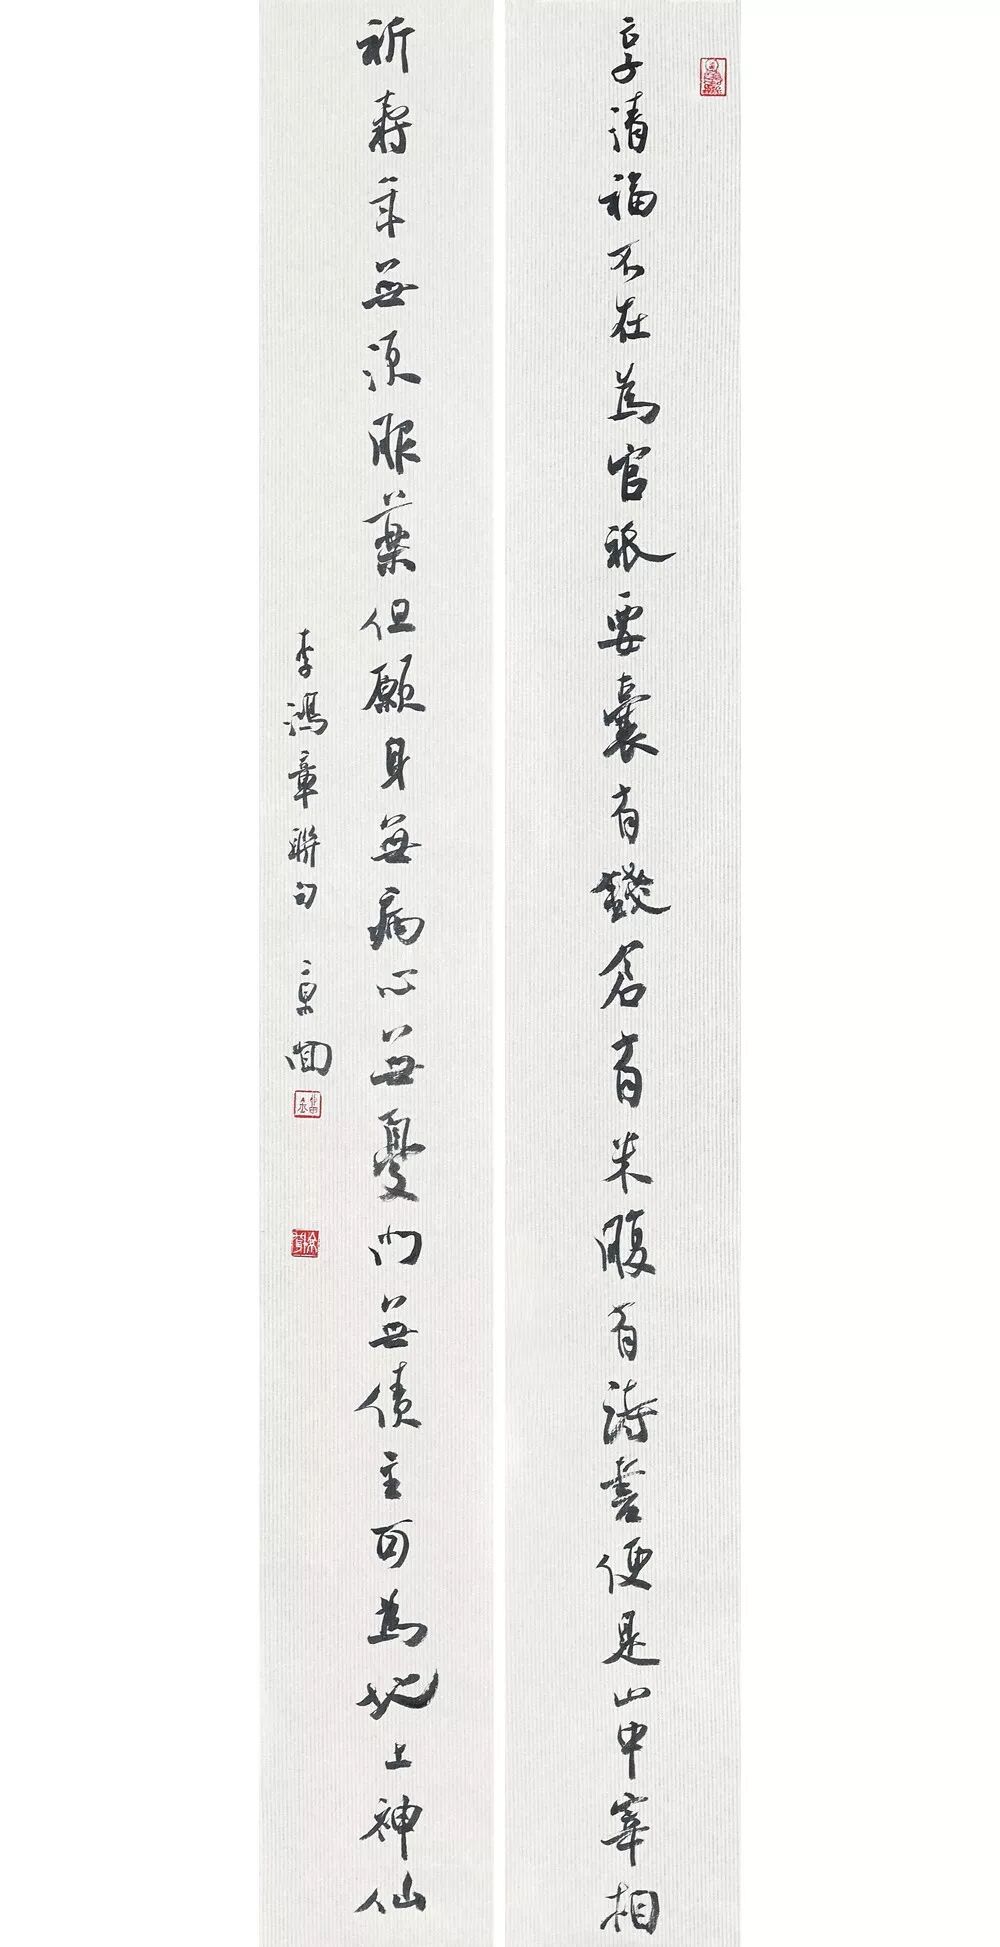 享清福不在為官祇要囊有錢倉有米腹有詩書便是山中宰相
祈壽年無須服藥但願身無病心無憂門無債主可為地上神仙
李鴻章聯句